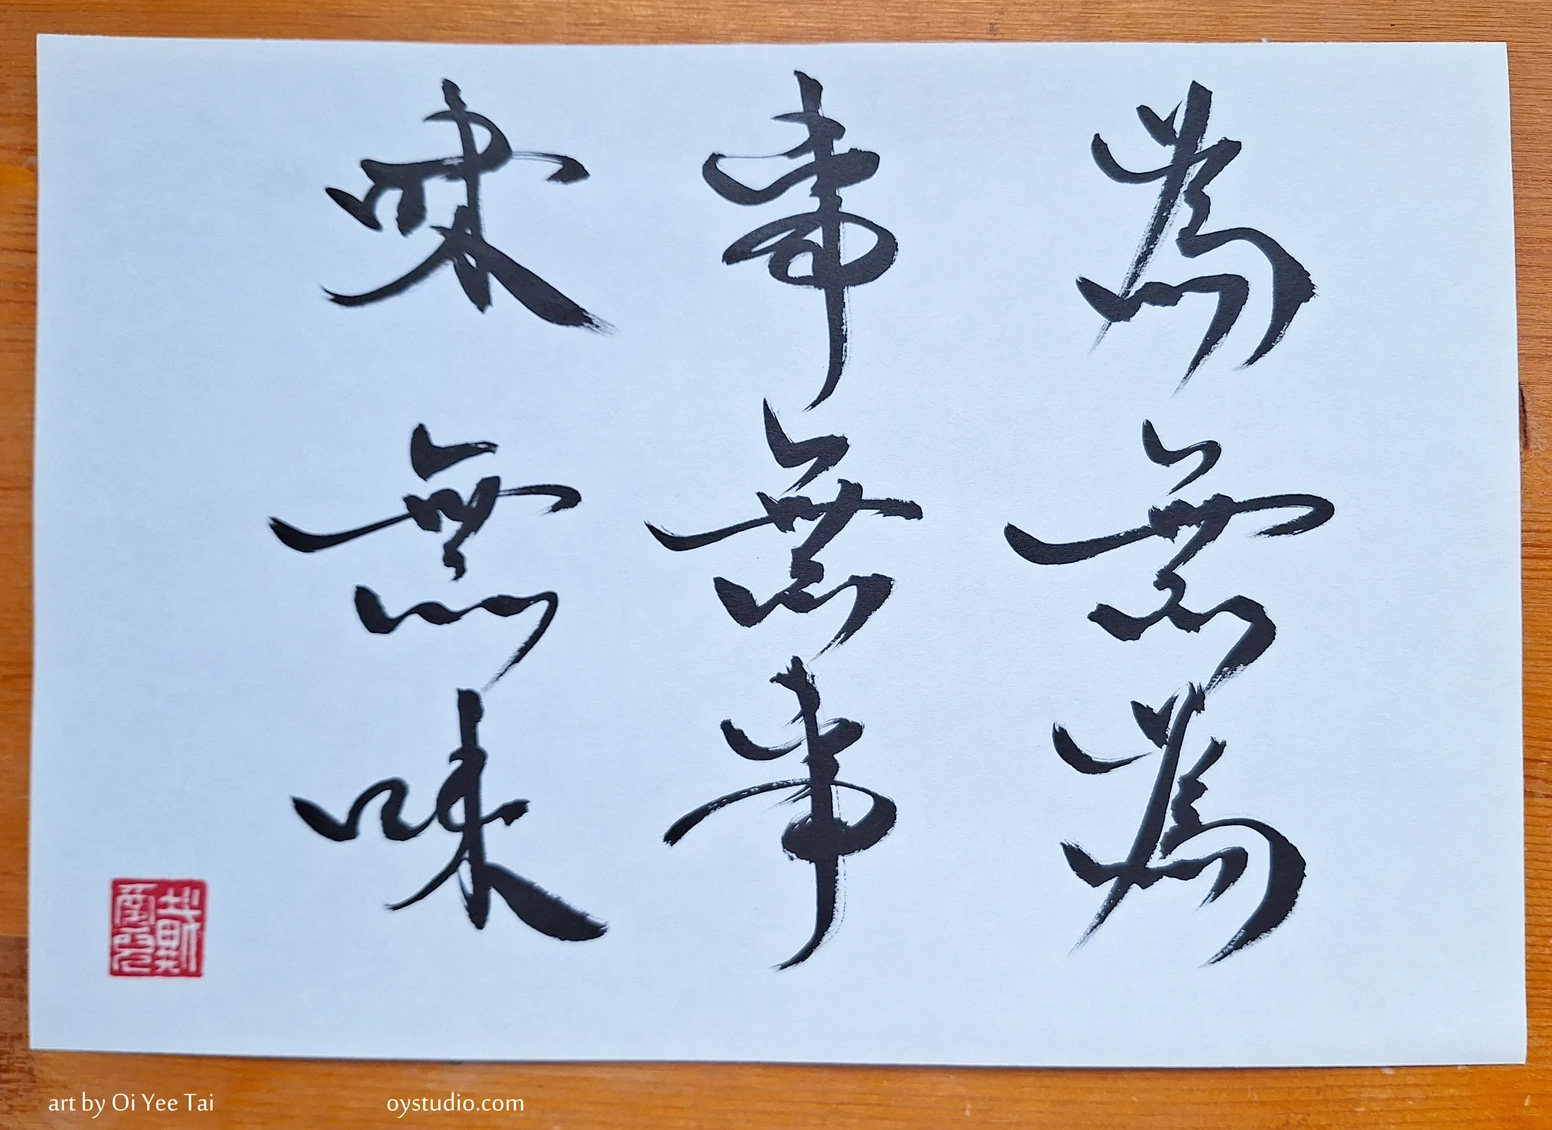 為無為
事無事
味無味
art by Oi Yee Tai
oystudio.com